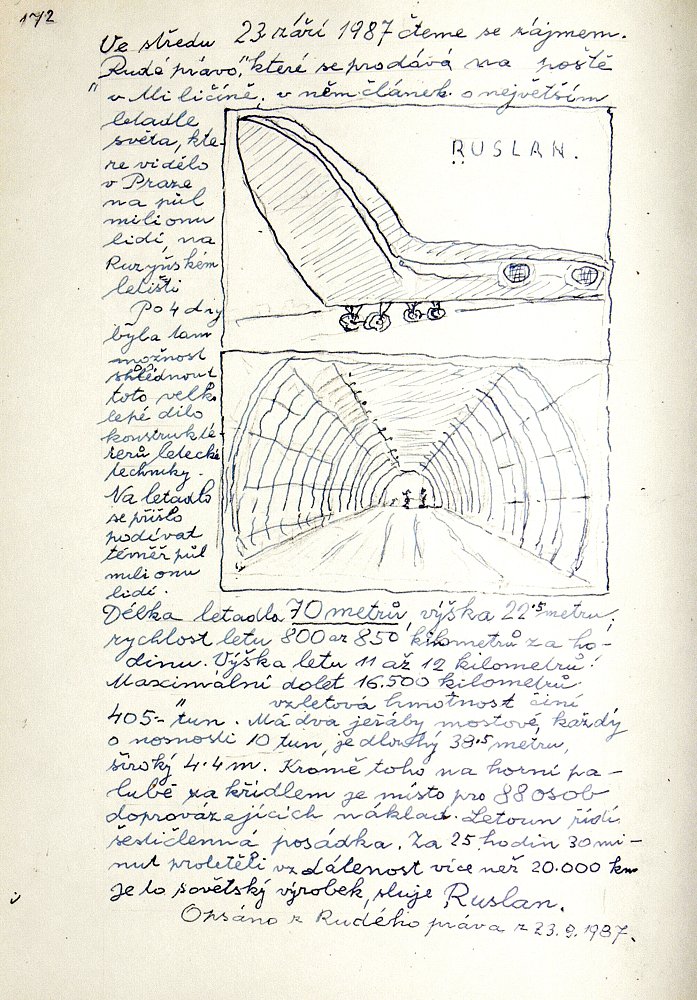 172
Ve středu 23 září 1987 čteme se zájmem.
"Rudé právo," které se prodává na poště
v Miličíně, v něm článek o největším
letadle
světa, kte-
ré vidělo
v Praze
na půl
milionu
lidí, na
Ruzyňském
letišti
RUSLAN.
Po 4 dny
byla tam
možnost
shlédnout
toto velko
lepé dílo
konstrukté-
rerů letecké
techniky.
Na letadlo
se přišlo
podívat
téměř půl
milionu
lidí.
Délka letadla 70 metrů, výška 22,5 metru,
rychlost letu 800 až 850 kilometrů za ho-
dinu. Výška letu 11 až 12 kilometrů!
Maximální dolet 16.500 kilometrů
vzletová hmotnost činí
405-tun. Má dva jeřáby mostové, každý
o nosnosti 10 tun, je dlouhý 39,5 metru,
široký 4.4 m. Kromě toho na horní pa-
lubě za křídlem je místo pro 88 osob
doprovázejících náklad. Letoun řídí
šestičlenná posádka. Za 25 hodin 30 mi-
nut proletěli vzdálenost více než 20.000 km
Je to sovětský výrobek, sluje Ruslan.
Opsáno z Rudého práva z 23.9.1987.